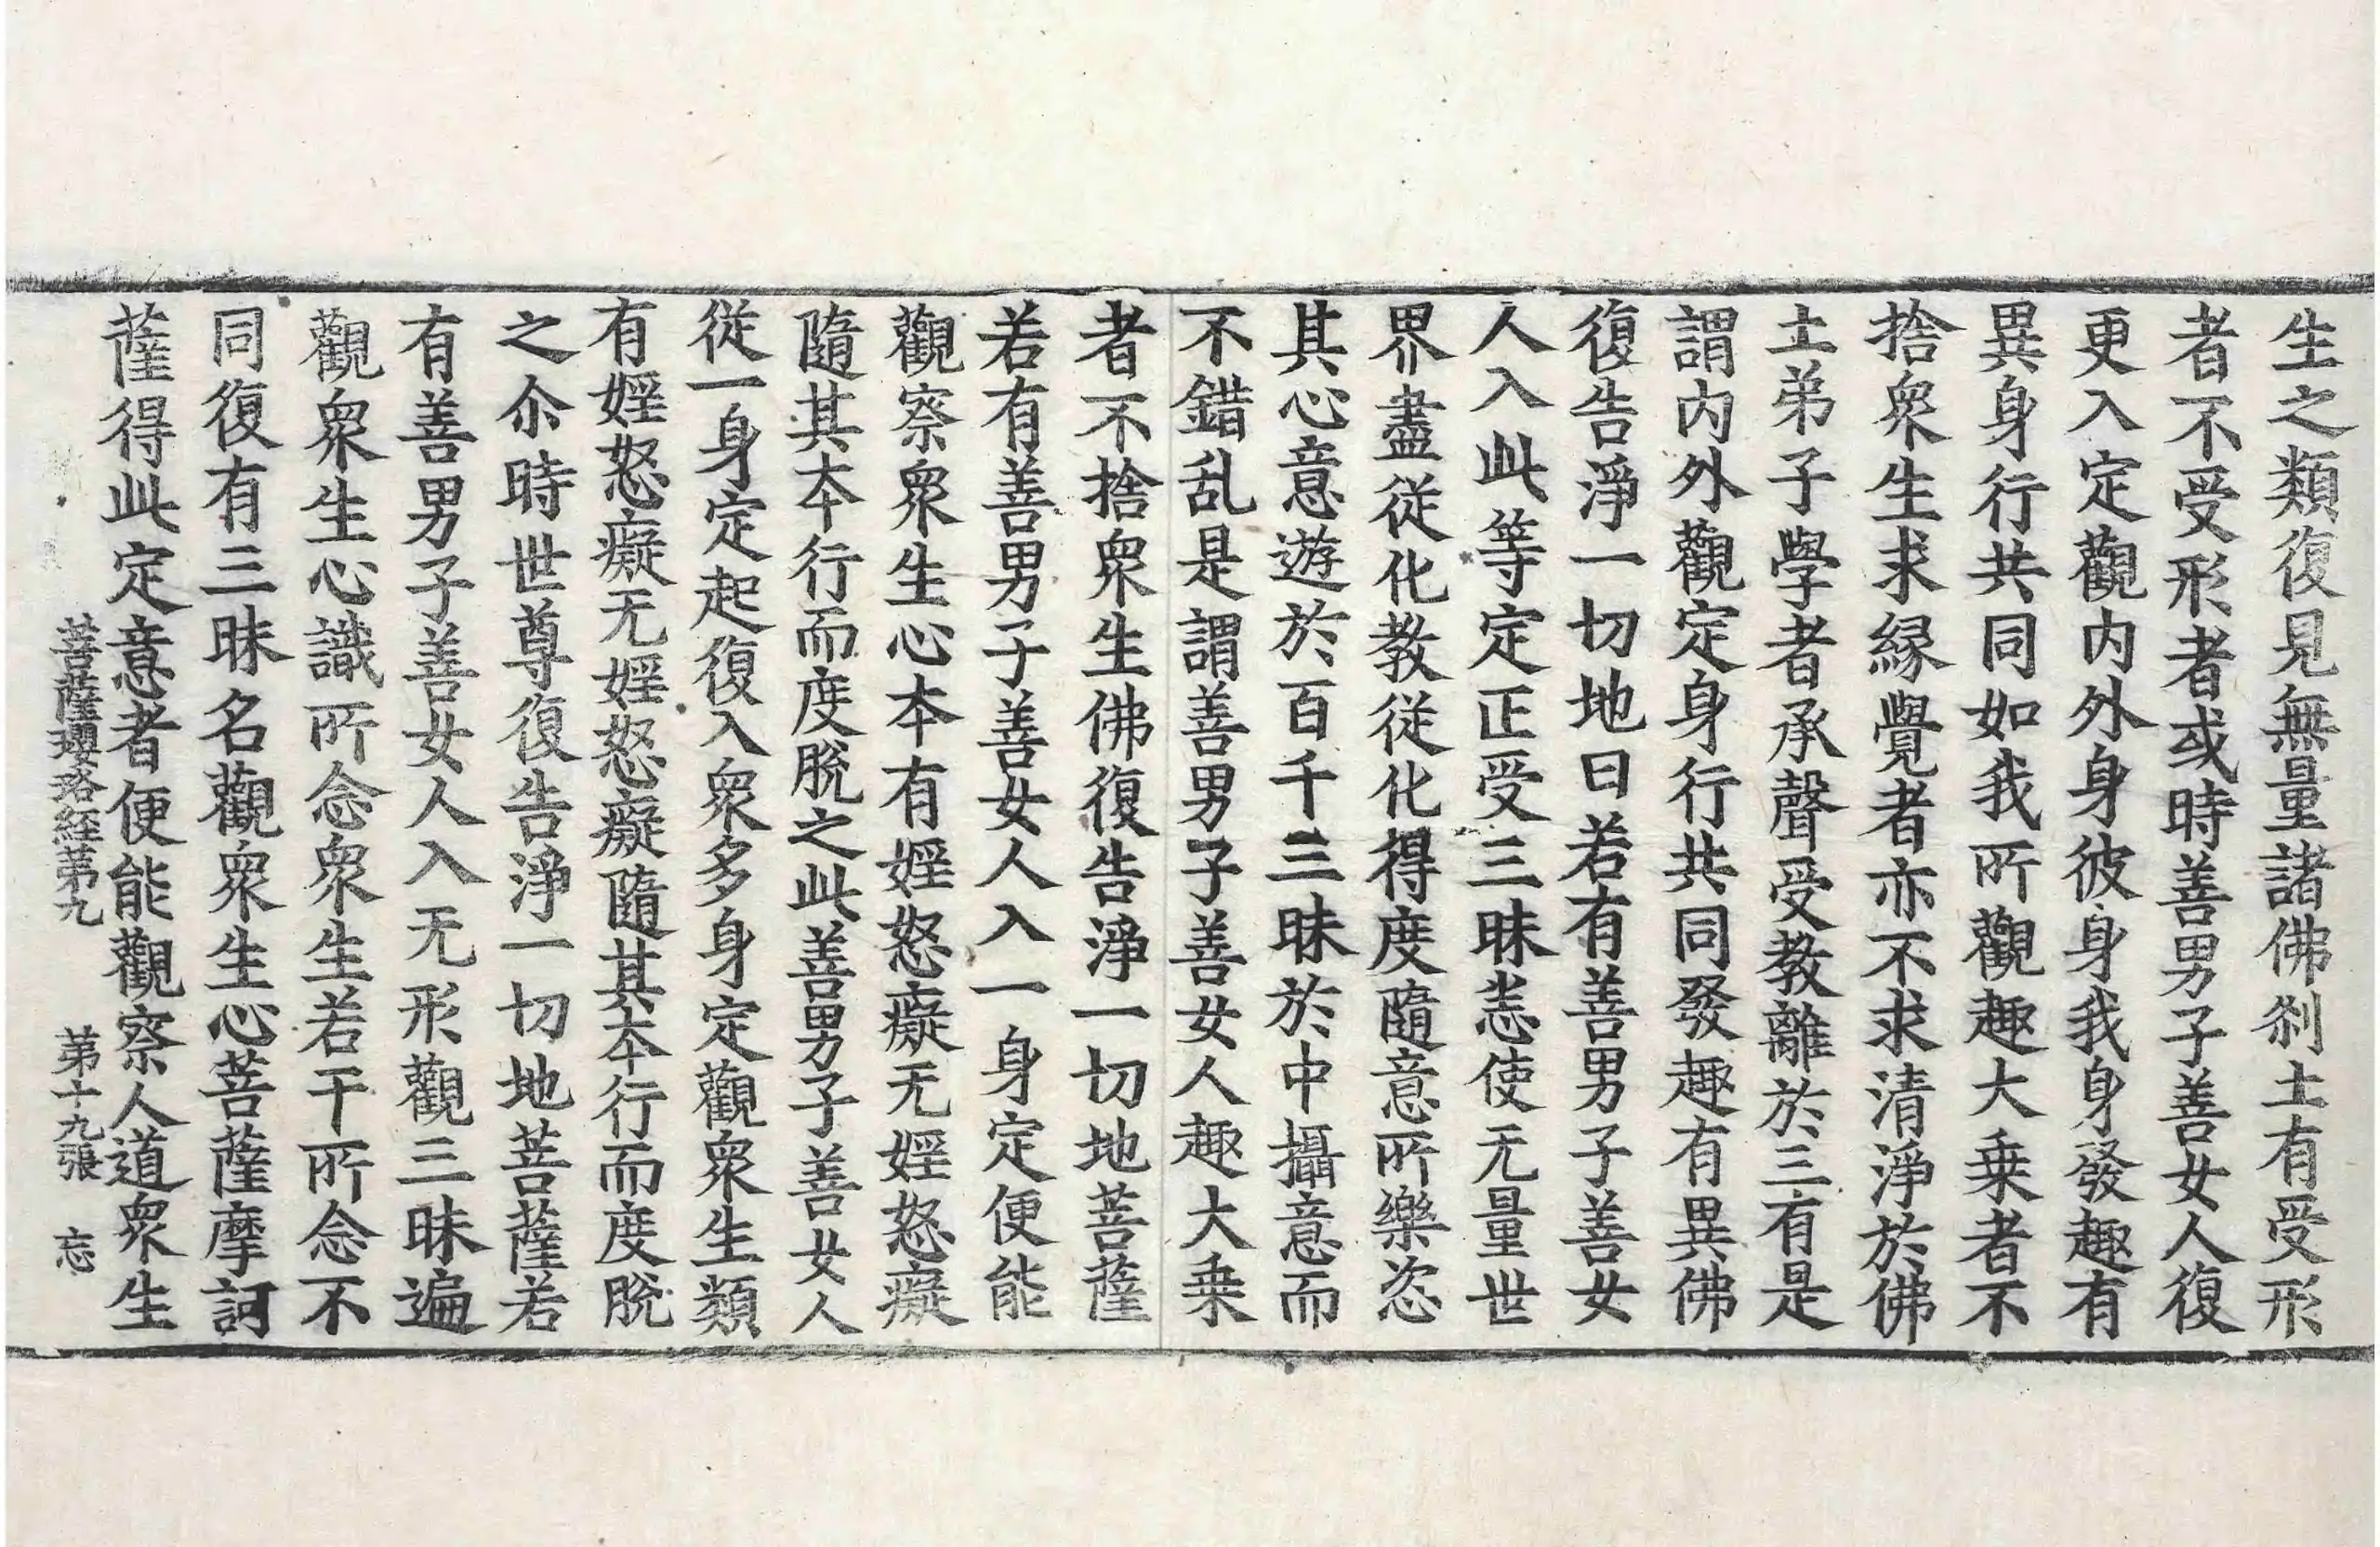 生之類復見無量諸佛刹土有受形
者不受形者或時善男子善女人復
更入定觀内外身彼身我身發趣有
異身行共同如我所觀趣大乗者不
捨衆生求緣覺者亦不求清淨於佛
土弟子學者承聲受教離於三有是
謂内外觀定身行共同發趣有異佛
復告淨一切地曰若有善男子善女
人入此等定正受三昧恙使无量世
界盡從化教從化得度隨意所樂恣
其心意遊於百千三昧於中攝意而
不錯乱是謂善男子善女人趣大乗
者不捨衆生佛復告淨一切地菩薩
若有善男子善女人入一身定便能
觀察衆生心本有婬怒癡无婬怒癡
隨其夲行而度脫之此善男子善女人
從一身定起復入衆多身定觀衆生類
有婬怒癡无婬怒癡隨其夲行而度脫
之尒時世尊復告淨一切地菩薩若
有善男子善女人入无形觀三昧遍
觀衆生心識所念衆生若干所念不
同復有三昧名觀衆生心菩薩摩訶
薩得此定意者便能觀察人道衆生
菩薩瓔珞經第九 第十九張 忘